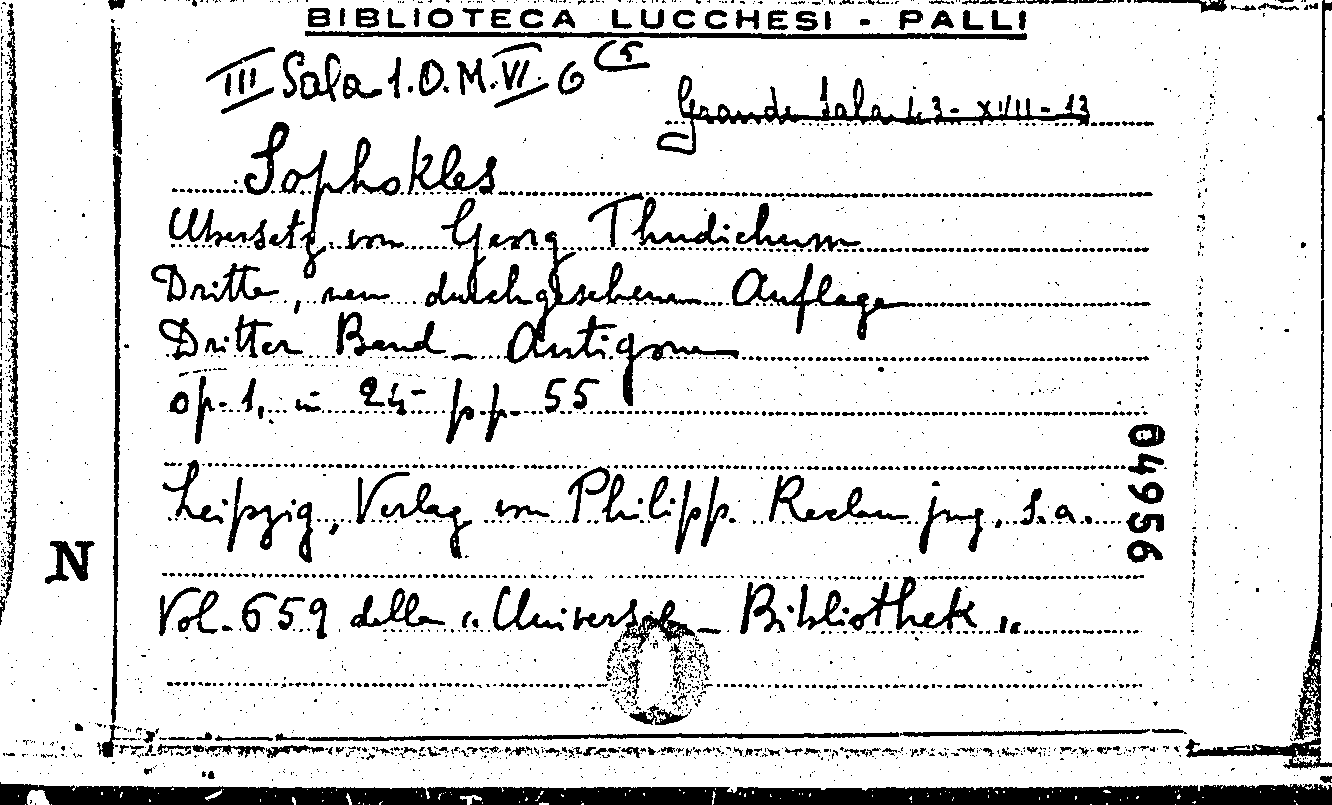 BIBLIOTECA LUCCHESI - PALLI
III Sala 1.O.M.VI. 6 (5
Grande Sala L 3 - XVIII - 13
Sophokles
Übersetz von Georg Thudichum
Dritte, neu durchgesehene Auflage
Dritter Band - Antigone
op. 1, in 24- pp. 55
Leipzig, Verlag von Philipp. Reclam jug, s.a.
Vol. 659 della "Universal - Bibliothek "
04956
N